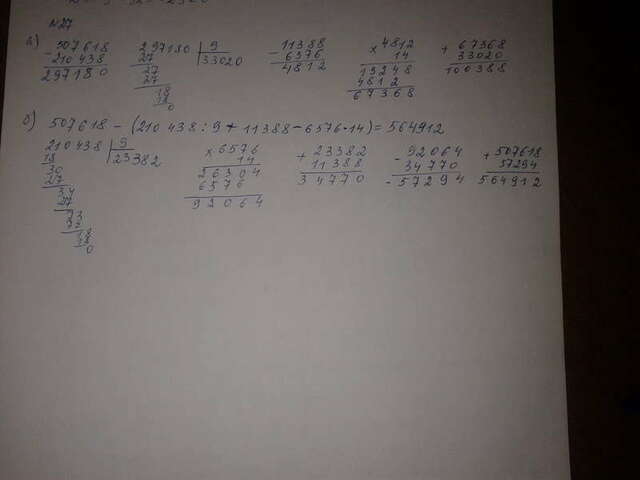 №27
а)
- 507618
210438
297180
297180 | 9
27 33020
27
27
18
18
0
- 11388
6576
4812
x 4812
14
19248
4812
67368
+ 67368
33020
100388
б) 507618 - (210 438 : 9 + 11388 - 6576 · 14) = 564912
210438 | 9
18 23382
30
27
34
27
73
72
18
18
0
x 6576
14
26304
6576
92064
+ 23382
11388
34770
- 92064
34770
- 57294
+ 507618
57294
564912